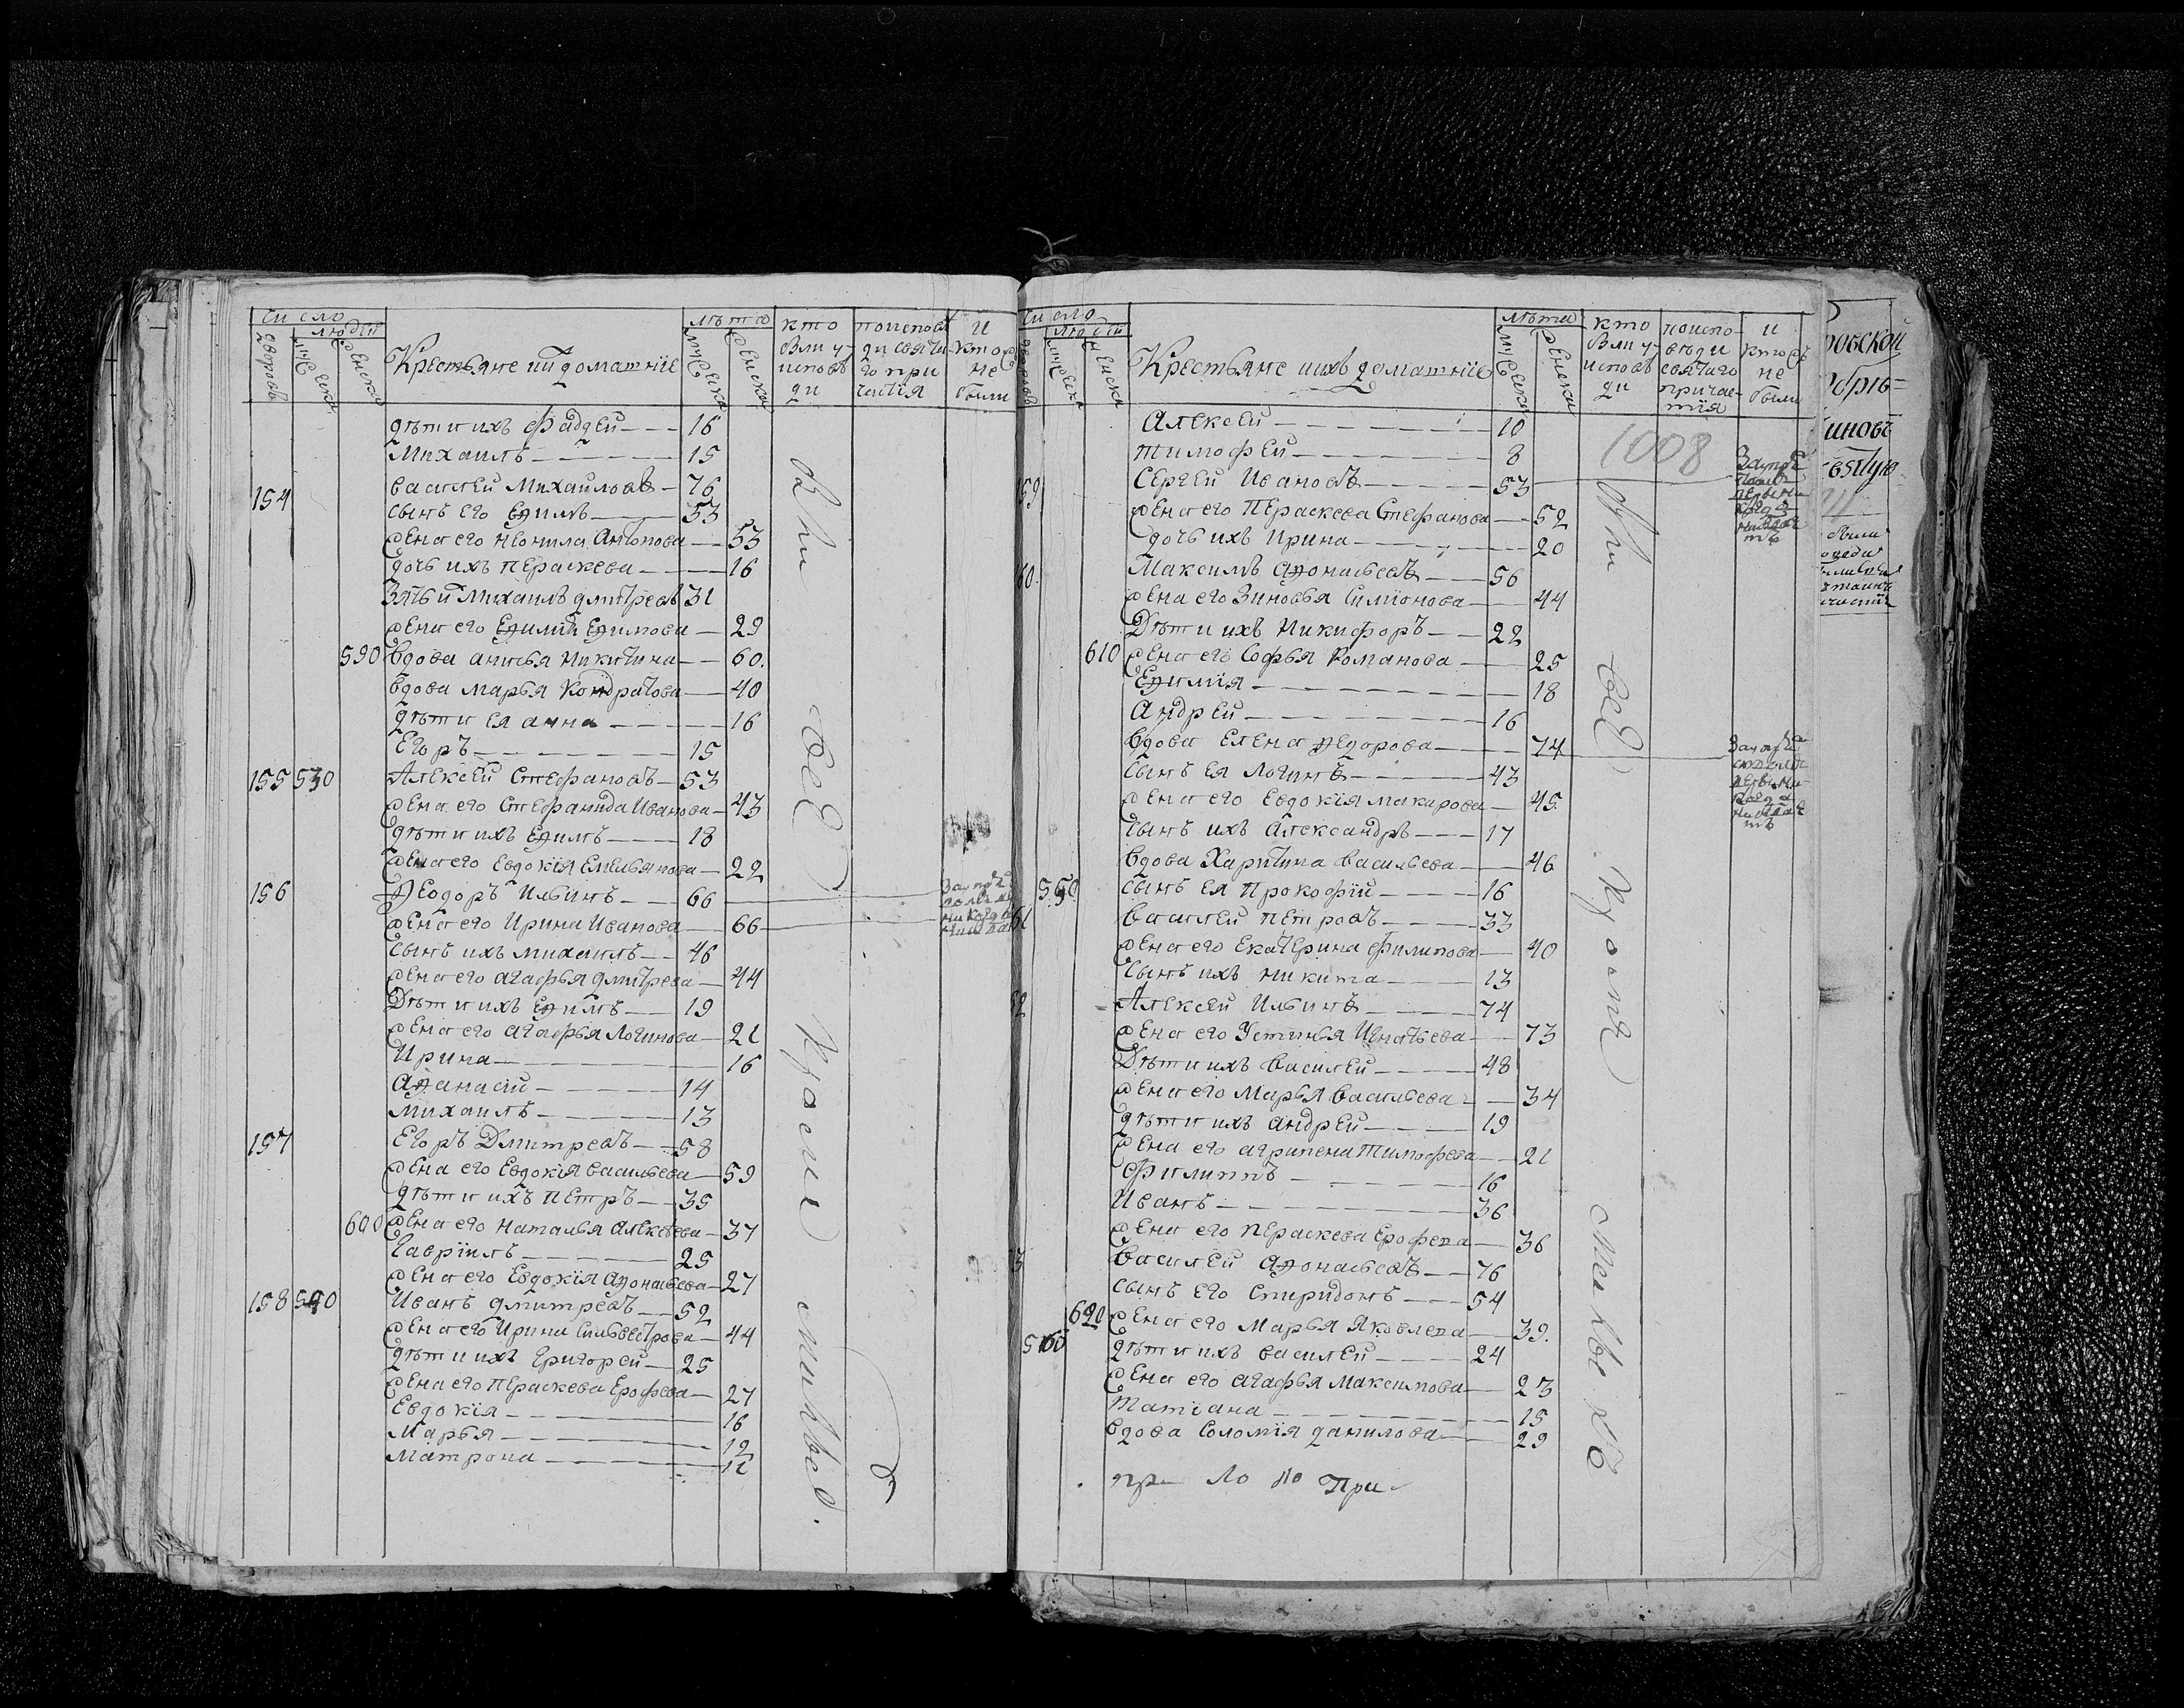 Число
людей
дворовъ
мужеска
женска
Крестьяне и ихъ домашніе
лѣта
мужеска
женска
кто
были у
исповѣ
ди
поисповѣ
ди святи
го при
частія
и
кто ж
не
были
дѣти ихъ Фаддей — 16
Михаилъ — 15
154 Василей Михайловъ — 76
сынъ его Ефимъ — 53
жена его Неонила Антонова — 53
дочь ихъ Пераскева — 16
Зять и Михаилъ Дмитревъ 31
жена его Ефимія Ефимова — 29
590 Вдова Анисья Никитина — 60.
Вдова Марья Кондратова — 40
дѣти ея Анна — 16
Егоръ — 15
155 530 Алексей Стефановъ — 53
жена его Стефанида Иванова — 43
дѣти ихъ Ефимъ — 18
жена его Евдокія Емельянова — 22
156 Феодоръ Ильинъ — 66
жена его Ирина Иванова — 66
сынъ ихъ Михаилъ — 46
жена его Агафья Дмитрева — 44
Дѣти ихъ Ефимъ — 19
жена его Агафья Логинова — 21
Ирина — 16
Афанасій — 14
Михаилъ — 13
157 Егоръ Дмитревъ — 58
жена его Евдокія Васильева — 59
дѣти ихъ Петръ — 35
600 жена его Наталья Алексѣева — 37
Гавріилъ — 25
жена его Евдокія Афонасьева — 27
158 540 Иванъ Дмитревъ — 52
жена его Ирина Сильвестрова — 44
дѣти ихъ Григорей — 25
жена его Пераскева Ерофева — 27
Евдокія — 16
Марья — 12
Матрона — 11
Число
людей
дворовъ
мужеска
женска
Крестьяне и ихъ домашніе
лѣта
мужеска
женска
кто
были у
исповѣ
ди
поиспо-
вѣди
святаго
причас-
тія
и
ктожъ
не
были
Алексей — 10
Тимофей — 8
1008
59 Сергей Ивановъ — 53
жена его Пераскева Стефанова — 52
дочь ихъ Ирина — 20
60. Максимъ Афонасьевъ — 56
жена его Зиновья Симіонова — 44
Дѣти ихъ Никифоръ — 22
610 жена его Софья Романова — 25
Ефимія — 18
Андрей — 16
Вдова Елена Федорова — 74
сынъ ея Логинъ — 43
жена его Евдокія Макарова — 45.
сынъ ихъ Александръ — 17
Вдова Харитина Васильева — 46
550 сынъ ея Прокофій — 16
61 Василей Петровъ — 33
жена его Екатерина Филипова — 40
сынъ ихъ Никита — 13
62 Алексей Ильинъ — 74
жена его Устинья Игнатьева — 73
Дѣти ихъ Василей — 48
жена его Марья Васильева — 34
дѣти ихъ Андрей — 19
жена его Агрипена Тимофеева — 21
Филиппъ — 16
Иванъ — 36
жена его Пераскева Ерофева — 36
3 Василей Афонасьевъ — 76
сынъ его Спиридонъ — 54
620 жена его Марья Яковлева — 39.
560 дѣти ихъ Василей — 24
жена его Агафья Максимова — 23
Татіана — 15
Вдова Соломія Данилова — 29
При
ровской